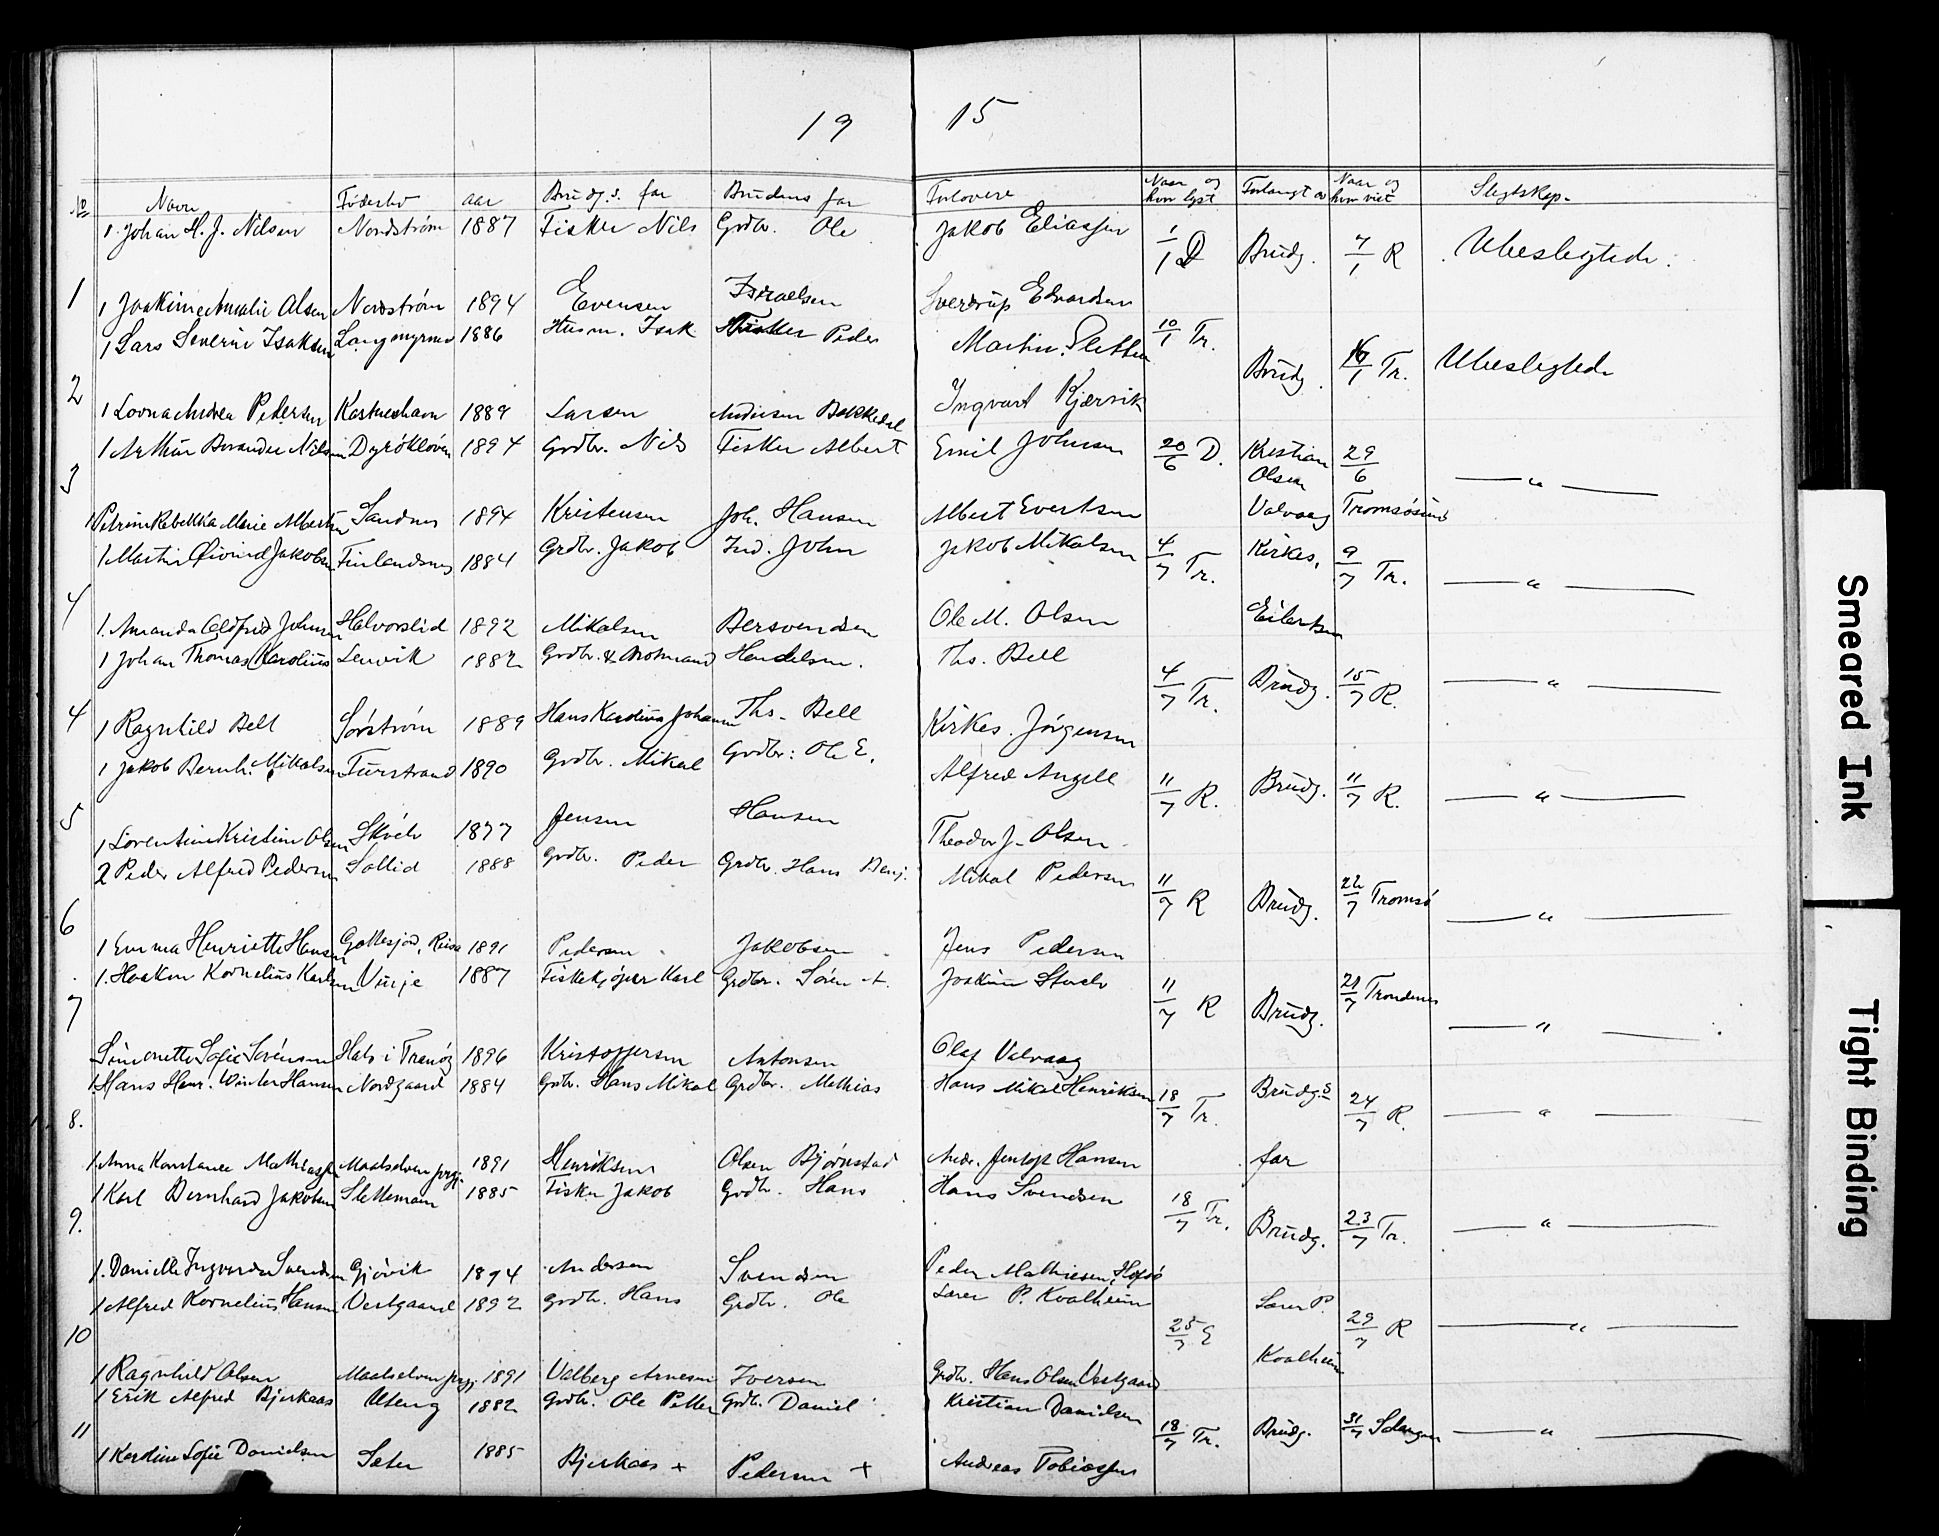 19 15
No Navn Fødested aar Brudg.s. far Brudens far Forlovere Naar og hvor lyst Forlangt av Naar og hvor viet Slegtskap.
1. Johan H. J. Nilsen Nordstrøm 1887 Fisker Nils Grdbr. Ole Jakob Eliassen 1/1 D Brudg. 7/1 R Ubeslegtede.
1 1 Joakime Amalie Olsen Nordstrøm 1894 Evensen Israelsen Sverdrup Edvardsen
1 Lars Severin Isaksen Langmyrmo 1886 Husm. Isak Fisker Peder Martin Sletten 10/1 Tr. Brudg. 16/1 Tr. Ubeslegtede
2 1 Lovna Andrea Pedersen Kastneshavn 1889 Larsen Andersen Bakkedal Ingvart Kjærvik
1 Arthur Berander Nilsen Dyrökloven 1894 Grdbr. Nils Fisker Albert Emil Johnsen 20/6 D. Kristian Olsen 29/6 — " —
3 1 Petrine Rebekka Marie Albertsen Sandnes 1894 Kristensen Joh. Hansen Albert Evertsen Valvaag Tromsøsund
1 Martin Øivind Jakobsen Finlandsnes 1884 Grdbr. Jakob Ind. John Jakob Mikalsen 4/7 Tr. Kirkes. 9/7 Tr. — " —
4 1. Amanda Oldfrid Johnsen Halvorslid 1892 Mikalsen Bersvendsen Ole M. Olsen Eilertsen
1 Johan Thomas Karolius Lenvik 1882 Grdbr. & Notmand Handelsm. Ths. Bell 4/7 Tr. Brudg. 15/7 R. — " —
4 1 Ragnhild Bell Sørstrøm 1889 Hans Karolius Johansen Ths. Bell Kirkes. Jørgensen
1 Jakob Bernh. Mikalsen Furstrand 1890 Grdbr. Mikal Grdbr: Ole E. Alfred Angell 11/7 R. Brudg. 11/7 R. — " —
5 1 Lorentine Kristine Olsen Skøelv 1877 Jensen Hansen Theodor J. Olsen
2 Peder Alfred Pedersen Sollid 1888 Grdbr. Peder Grdbr. Hans Benj. Mikal Pedersen 11/7 R Brudg. 22/7 Tromsø — " —
6 1 Emma Henriette Hansen Gottesjord, Reisa 1891 Pedersen Jakobsen Jens Pedersen
1. Haakon Kornelius Karlsen Vinje 1887 Fiskekjøper Karl Grdbr. Søren +. Joakim Storelv 11/7 R Brudg. 21/7 Trondenes — " —
7 Simonette Sofie Sørensen Hals i Tranøy 1896 Kristoffersen Antonsen Olaf Valvaag
1. Hans Henr. Winter Hansen Nordgaard 1884 Grdbr. Hans Mikal Grdbr. Mathias Hans Mikal Henriksen 18/7 Tr. Brudg.s 24/7 R. — " —
8. 1. Anna Konstance Mathiassen Maalselven prgj. 1891 Henriksen Olsen Bjørnstad Andr. Jentoft Hansen far
1 Karl Bernhard Jakobsen Slettemoen 1885 Fisker Jakob Grdbr. Hans Hans Svendsen 18/7 Tr. Brudg. 23/7 Tr. — " —
9. 1. Danielle Ingvarda Svendsen Gjøvik 1894 Andersen Svendsen Peder Mathiesen, Hofsø
1 Alfred Kornelius Hansen Vestgaard 1892 Grdbr. Hans Grdbr. Ole Lærer P. Kvalheim 25/7 E Lærer P. 29/7 R — " —
10 1 Ragnhild Olsen Maalselven prgj. 1891 Valberg Arnesen Iversen Grdbr. Hans Olsen Vestgaard Kvalheim
1 Erik Alfred Bjerkaas Uteng 1882 Grdbr. Ole Petter Grdbr. Daniel Kristian Danielsen 18/7 Tr. Brudg. 31/7 Salangen — " —
11 1 Karoline Sofie Danielsen Sæter 1885 Bjerkaas + Pedersen + Andreas Tobiassen
Smeared Ink
Tight Binding